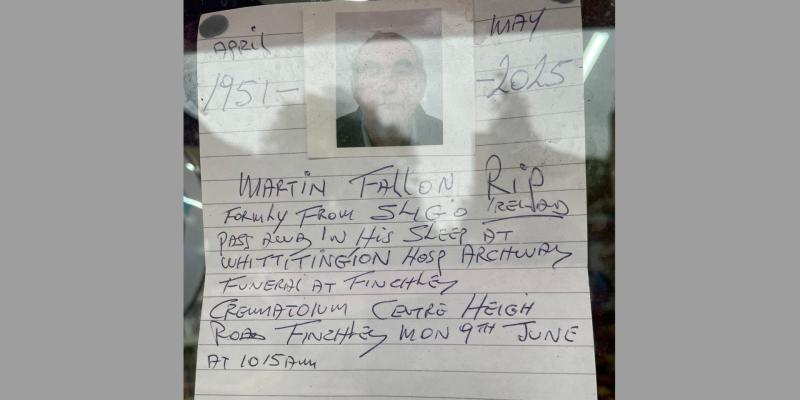 APRIL
1951-
MAY
-2025
MARTIN FALLON RIP
FORMLY FROM SLIGO IRELAND
PASS AWAY IN HIS SLEEP AT
WHITTITINGTON HOSP ARCHWAY
FUNERAL AT FINCHLEY
CREMATOIUM CENTRE HEIGH
ROAD FINCHLEY MON 9TH JUNE
AT 1015AM